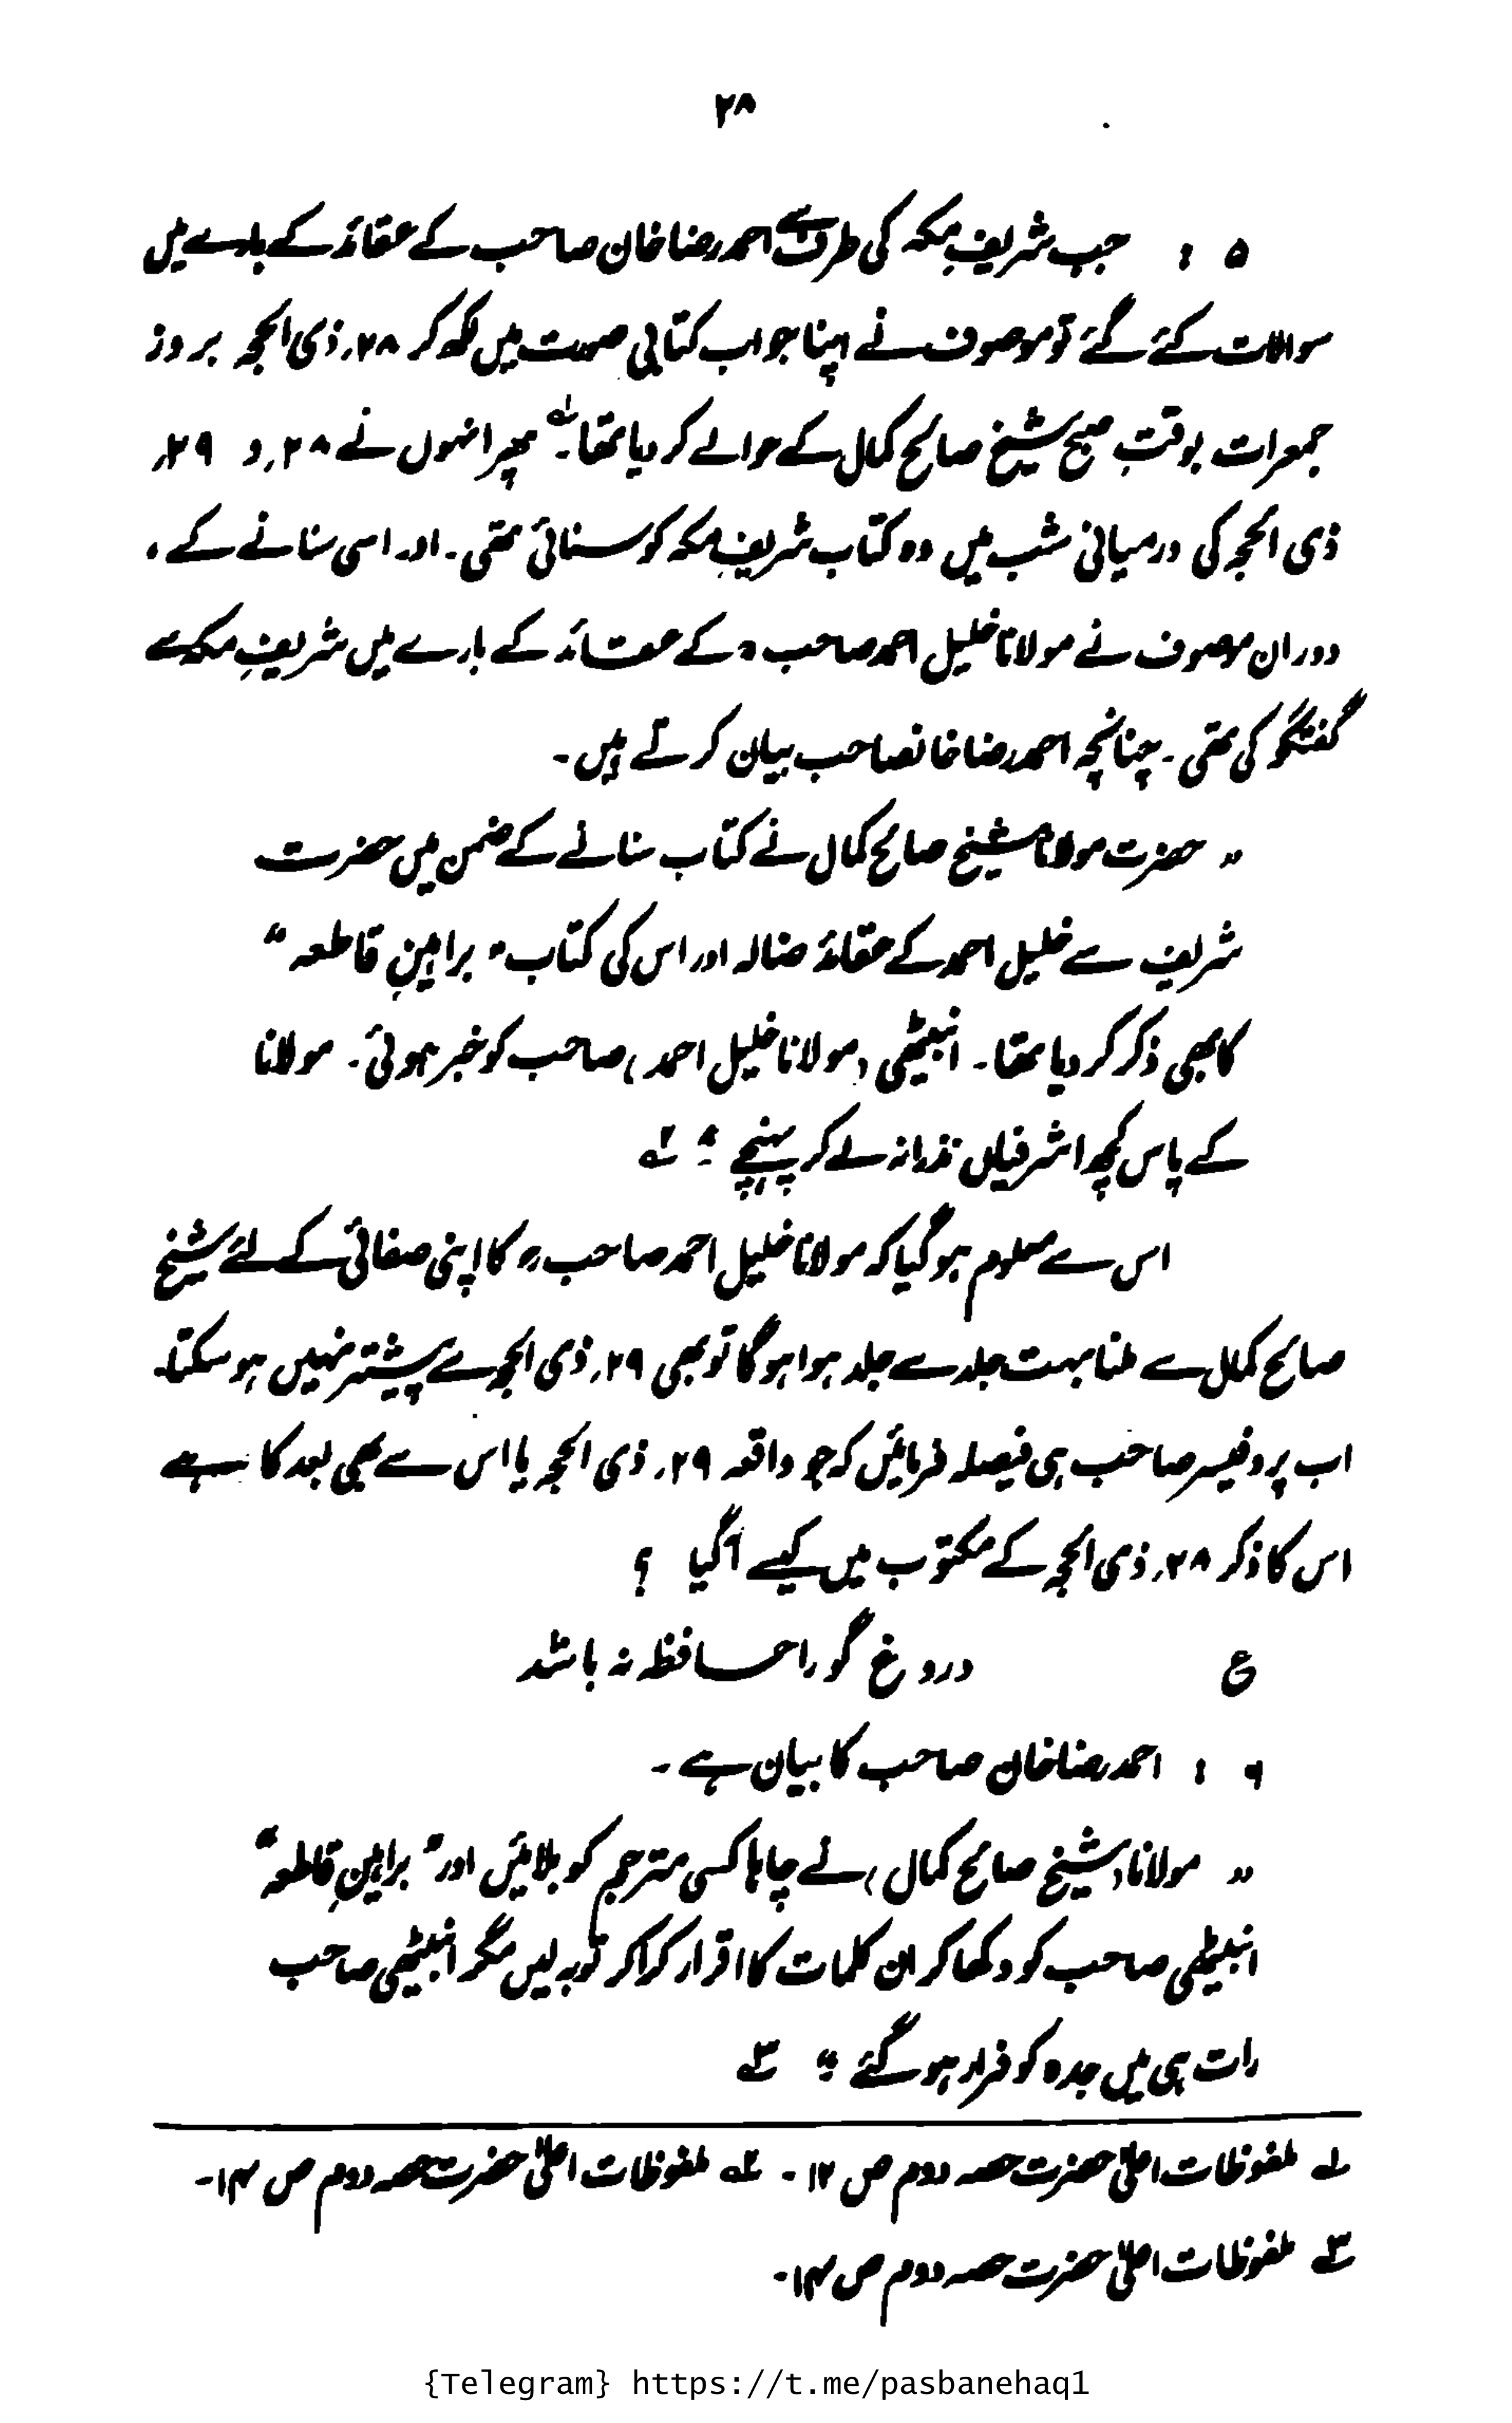 ۲۸
۵ : جب شریفِ مکہ کی طرف سے احمد رضا خان صاحب کے عقائد کے بارے میں
سوالات کئے گئے تو موصوف نے اپنا جواب کتابی صورت میں لکھ کر ۲۸؍ ذی الحجہ بروز
جمعرات بوقتِ صبح شیخ صالح کمال کے حوالے کر دیا تھا۔ لہ پھر انہوں نے ۲۸؍ و ۲۹؍
ذی الحجہ کی درمیانی شب میں وہ کتاب شریفِ مکہ کو سنائی تھی۔ اور اسی سنانے کے ،
دوران موصوف نے مولانا خلیل احمد صاحبؒ کے عقائد کے بارے میں شریفِ مکہ سے
گفتگو کی تھی ۔ چنانچہ احمد رضا خانصاحب بیان کرتے ہیں۔
" حضرت مولانا شیخ صالح کمال نے کتاب سنانے کے ضمن میں حضرت
شریف سے خلیل احمد کے عقائد ضالہ اور اس کی کتاب " براہینِ قاطعہ "
کا بھی ذکر کر دیا تھا۔ انبیٹھی (مولانا خلیل احمد) صاحب کو خبر ہوئی۔ مولانا
کے پاس کچھ اشرفیاں نذرانہ لے کر پہنچے " ۲ہ
اس سے معلوم ہو گیا کہ مولانا خلیل احمد صاحبؒ کا اپنی صفائی کے لئے شیخ
صالح کمال سے ملنا بہت جلد سے جلد ہوا ہوگا تو بھی ۲۹؍ ذی الحجہ سے پیشتر نہیں ہو سکتا۔
اب پروفیسر صاحب ہی فیصلہ فرمائیں کہ جو واقعہ ۲۹؍ ذی الحجہ یا اس سے بھی بعد کا ہے
اس کا ذکر ۲۸؍ ذی الحجہ کے مکتوب میں کیسے آگیا ؟
ع دروغ گو را حافظہ نہ باشد
۶ : احمد رضا خان صاحب کا بیان ہے ۔
" مولانا (شیخ صالح کمال) نے چاہا کسی مترجم کو بلائیں اور " براہینِ قاطعہ "
انبیٹھی صاحب کو دکھا کر ان کلمات کا اقرار کرا کر توبہ لیں مگر انبیٹھی صاحب
رات ہی میں جدہ کو فرار ہو گئے " ۳ہ
لہ ملفوظات اعلیٰ حضرت حصہ دوم ص ۱۲ ۔ ۲ہ ملفوظات اعلیٰ حضرت حصہ دوم ص ۱۴۔
۳ہ ملفوظات اعلیٰ حضرت حصہ دوم ص ۱۴۔
{Telegram} https://t.me/pasbanehaq1